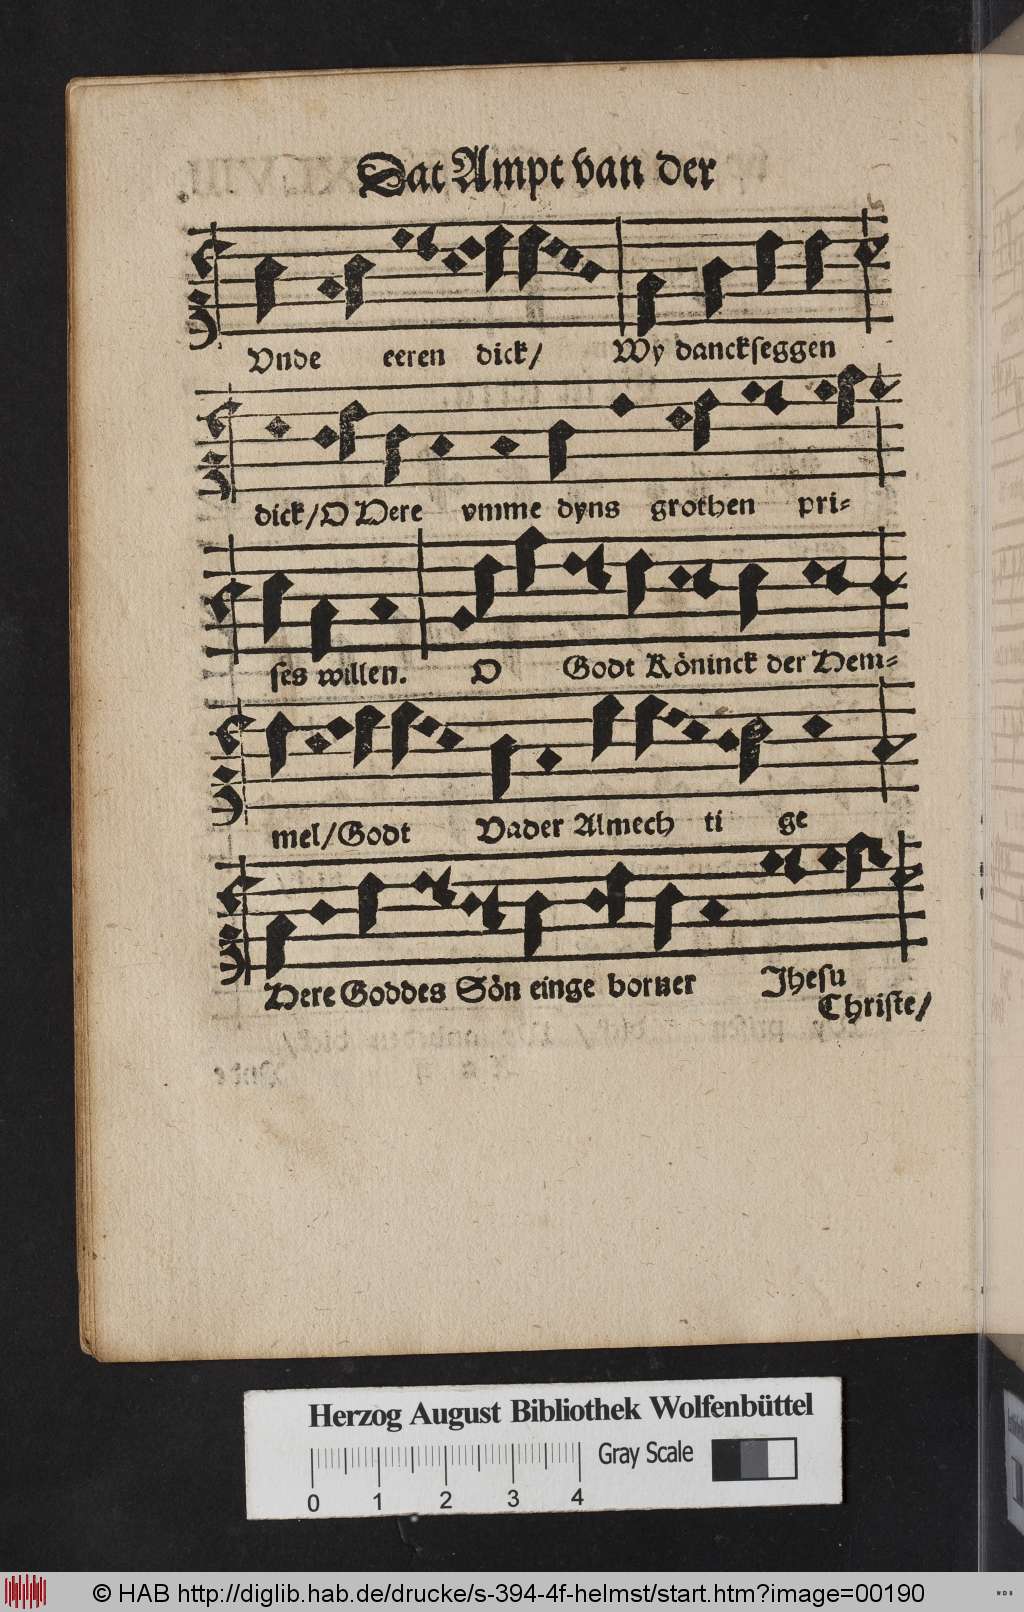 Dat Ampt van der
Vnde eeren dick/ Wy danckseggen
dick/O Here vmme dyns grothen pri-
ses willen. O Godt Köninck der Hem-
mel/Godt Vader Almech ti ge
Here Goddes Sön einge borner Jhesu
Christe/
Herzog August Bibliothek Wolfenbüttel
Gray Scale
0 1 2 3 4
© HAB http://diglib.hab.de/drucke/s-394-4f-helmst/start.htm?image=00190